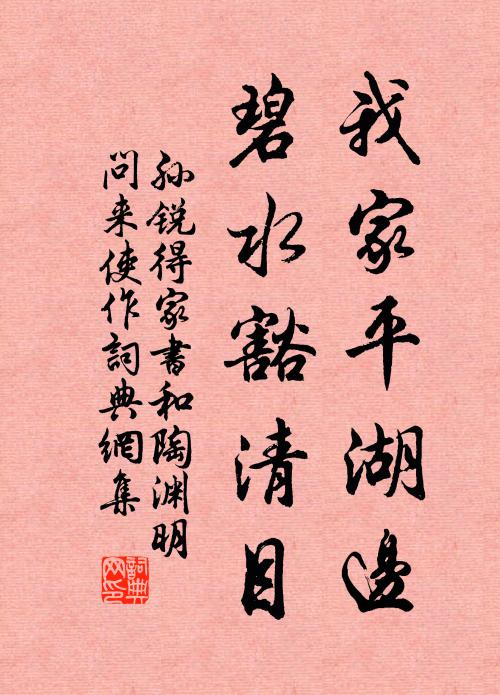 我家平湖邊
碧水豁清目
孙锐得家書和陶渊明
问来使作詞典網集
詞典
网印